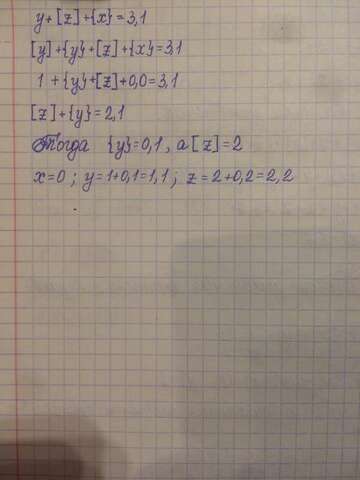 y+[z]+{x}=3,1
[y]+{y}+[z]+{x}=3,1
1+{y}+[z]+0,0=3,1
[z]+{y}=2,1
Тогда {y}=0,1, а [z]=2
x=0; y=1+0,1=1,1; z=2+0,2=2,2